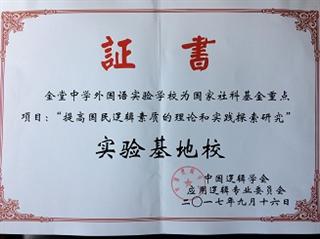 証書
金堂中学外国语实验学校为国家社科基金重点
项目：“提高国民逻辑素质的理论和实践探索研究”
实验基地校
中国逻辑学会
应用逻辑专业委员会
二〇一七年九月十六日